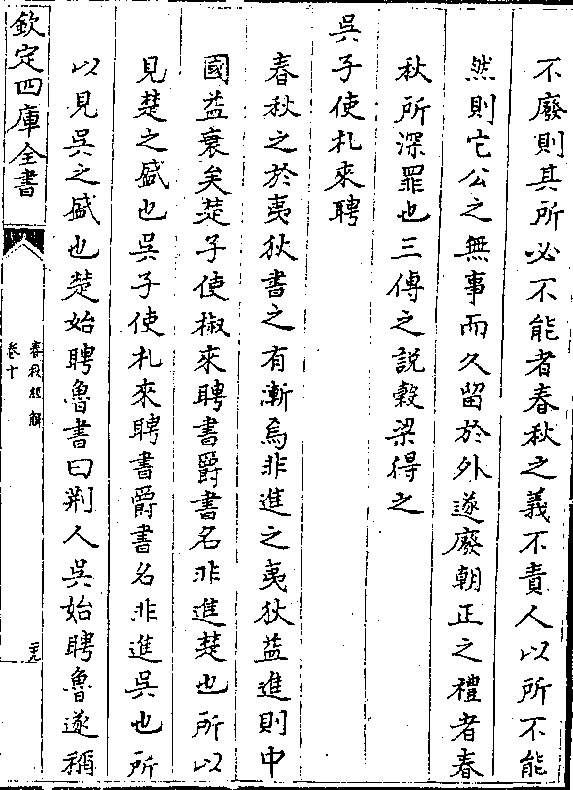 不廢則其所必不能者春秋之義不責人以所不能
然則它公之無事而久留於外遂廢朝正之禮者春
秋所深罪也三傳之説穀梁得之
吳子使札來聘
春秋之於夷狄書之有漸焉非進之夷狄益進則中
國益衰矣楚子使椒來聘書爵書名非進楚也所以
見楚之盛也吳子使札來聘書爵書名非進吳也所
以見吳之盛也楚始聘魯書曰荆人吳始聘魯遂稱
欽定四庫全書
春秋經解
卷十
二十九